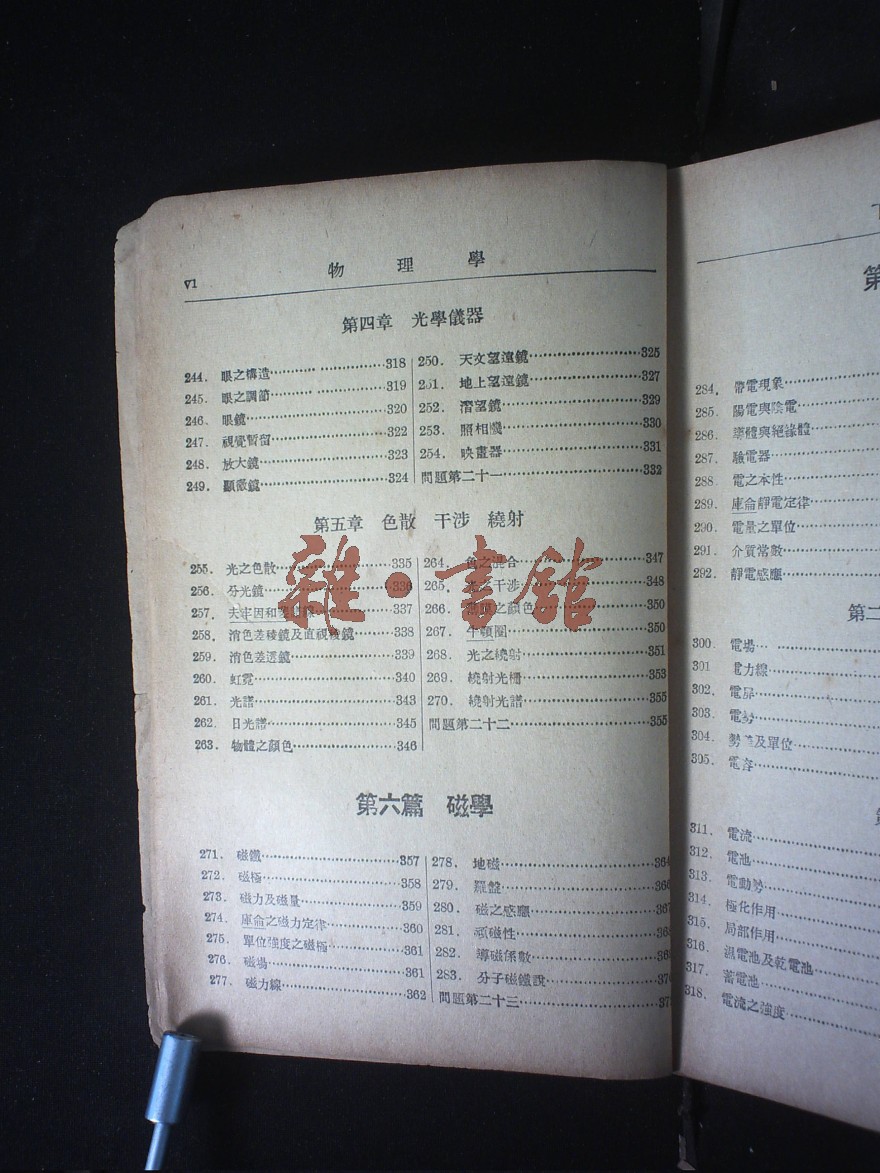 VI
物理學
第四章 光學儀器
244. 眼之構造 318
245. 眼之調節 319
246. 眼鏡 320
247. 視覺暫留 322
248. 放大鏡 323
249. 顯微鏡 324
250. 天文望遠鏡 325
251. 地上望遠鏡 327
252. 潛望鏡 329
253. 照相機 330
254. 映畫器 331
問題第二十一 332
第五章 色散 干涉 繞射
255. 光之色散 335
256. 分光鏡 336
257. 夫牢因和 337
258. 消色差稜鏡及直視稜鏡 338
259. 消色差透鏡 339
260. 虹霓 340
261. 光譜 343
262. 日光譜 345
263. 物體之顏色 346
264. 色之混合 347
265. 光之干涉 348
266. 薄膜之顏色 350
267. 牛頓圈 350
268. 光之繞射 351
269. 繞射光柵 353
270. 繞射光譜 355
問題第二十二 355
雜·書館
第六篇 磁學
271. 磁鐵 357
272. 磁極 358
273. 磁力及磁量 359
274. 庫侖之磁力定律 360
275. 單位強度之磁極 361
276. 磁場 361
277. 磁力線 362
278. 地磁 364
279. 羅盤 366
280. 磁之感應 367
281. 頑磁性
282. 導磁係數
283. 分子磁鐵說
問題第二十三
第
284. 帶電現象
285. 陽電與陰電
286. 導體與絕緣體
287. 驗電器
288. 電之本性
289. 庫侖靜電定律
290. 電量之單位
291. 介質常數
292. 靜電感應
第二
300. 電場
301. 電力線
302. 電屏
303. 電勢
304. 勢差及單位
305. 電容
311. 電流
312. 電池
313. 電動勢
314. 極化作用
315. 局部作用
316. 濕電池及乾電池
317. 蓄電池
318. 電流之強度